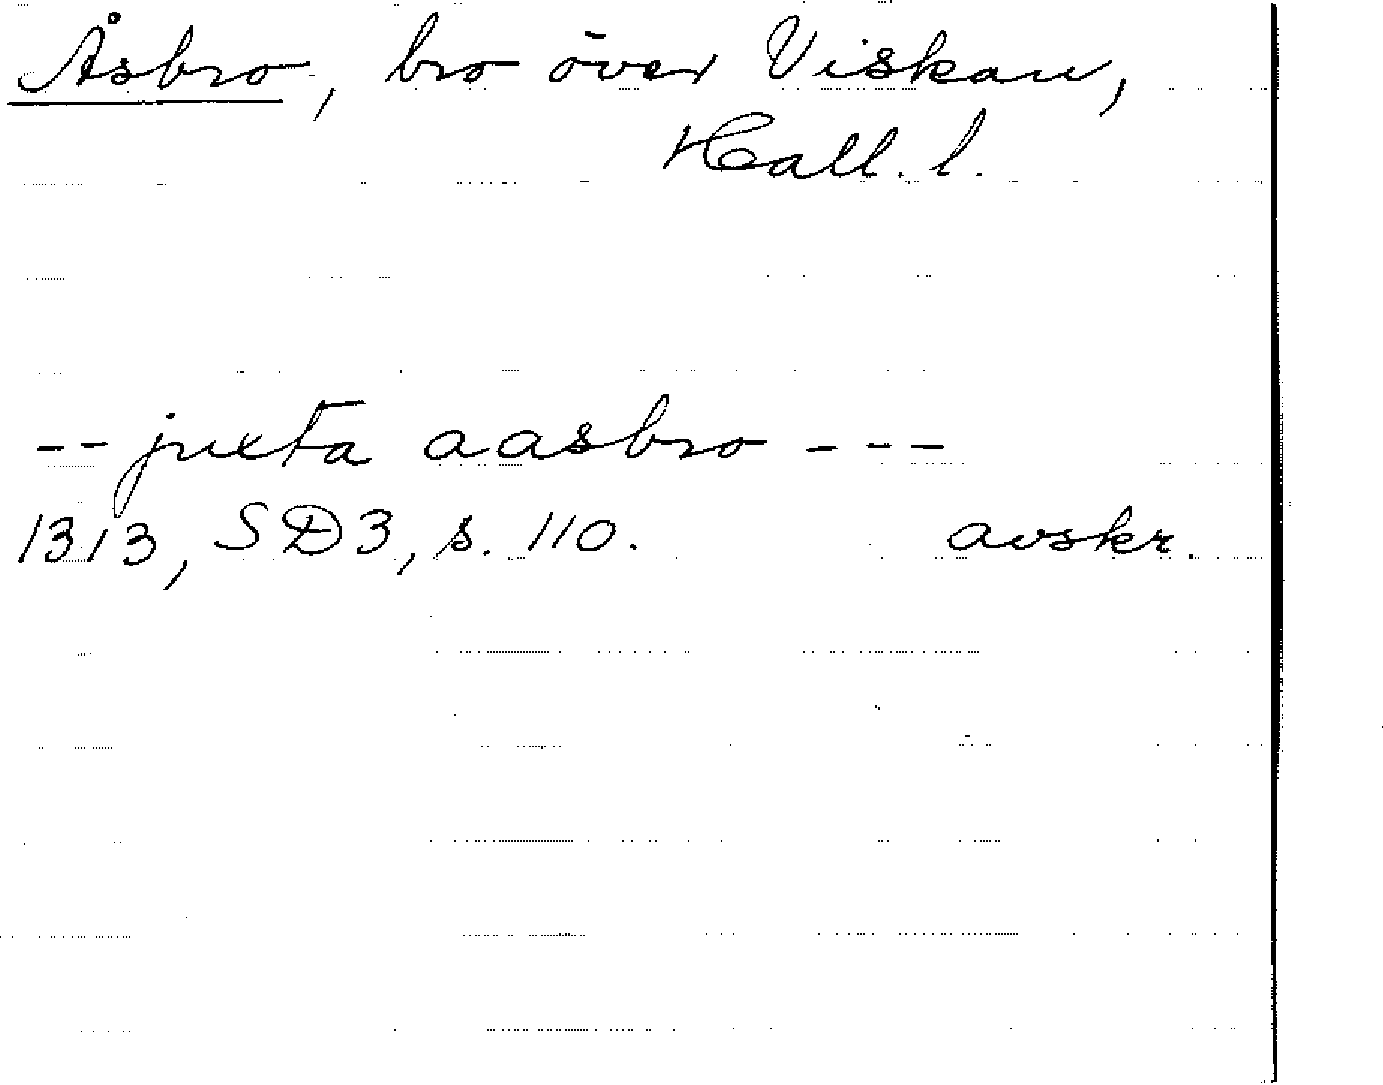 Åsbro, bro över Viskan,
Hall. l.
-- juxta aasbro ---
1313, SD3, s. 110. avskr.